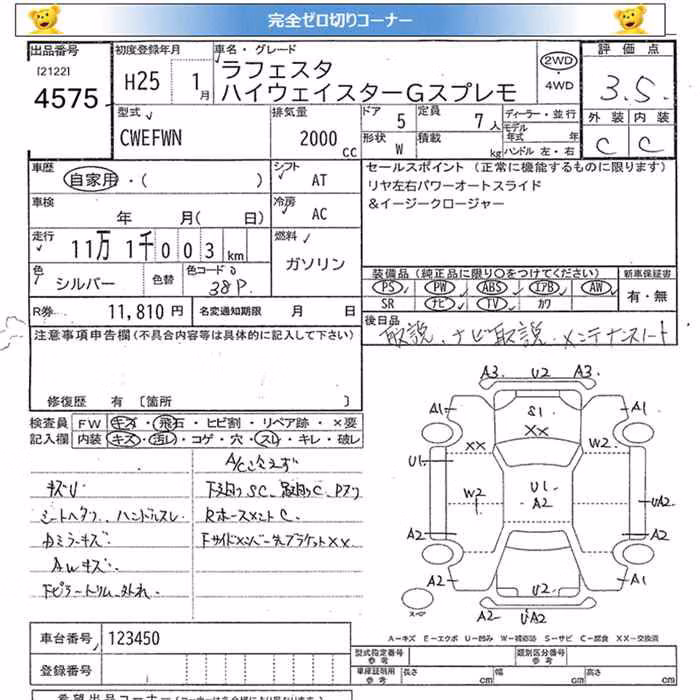 完全ゼロ切りコーナー
出品番号
[2122]
4575
初度登録年月
H25
1月
車名・グレード
ラフェスタ
ハイウェイスターGスプレモ
2WD
4WD
評価点
3.5
外装 内装
C C
型式
CWEFWN
排気量
2000 cc
ドア 5
形状 W
定員 7人
積載 kg
ディーラー・並行
モデル年式 年
ハンドル 左・右
車歴
自家用・( )
シフト
AT
車検
年 月( 日)
冷房
AC
走行
11万1千003km
燃料
ガソリン
色
シルバー
色替
色コード
38P
R券
11,810円
名変通知期限 月 日
セールスポイント(正常に機能するものに限ります)
リヤ左右パワーオートスライド
&イージークロージャー
装備品(純正品に限り○をつけてください)
新車保証書
PS PW ABS エアB AW
SR ナビ TV カワ
有・無
後日品
取説、ナビ取説、メンテナンスノート
注意事項申告欄(不具合内容等は具体的に記入して下さい)
修復歴 有 [箇所 ]
検査員記入欄
FW キズ・飛石・ヒビ割・リペア跡・×要
内装 キズ・汚レ・コゲ・穴・スレ・キレ・破レ
A/Cひえず
キズU
シートヘタリ、ハンドルスレ
カミラーキズ
AWキズ
下廻りSC、足廻りC、
下サイドメンバーブラケットXX
A3 U2 A3
A1 S1 A1
XX
XX W2
U1
W2 U1 A2
UA2
A2 A2
A2 U2 A1
スペア
A2 UA2
A-キズ E-エクボ U-凹み W-補修跡 S-サビ C-腐食 XX-交換済
車台番号
123450
登録番号
型式指定番号 参考
類別区分番号 参考
車庫証明用 参考
長さ cm 幅 cm 高さ cm
希望出品コーナー